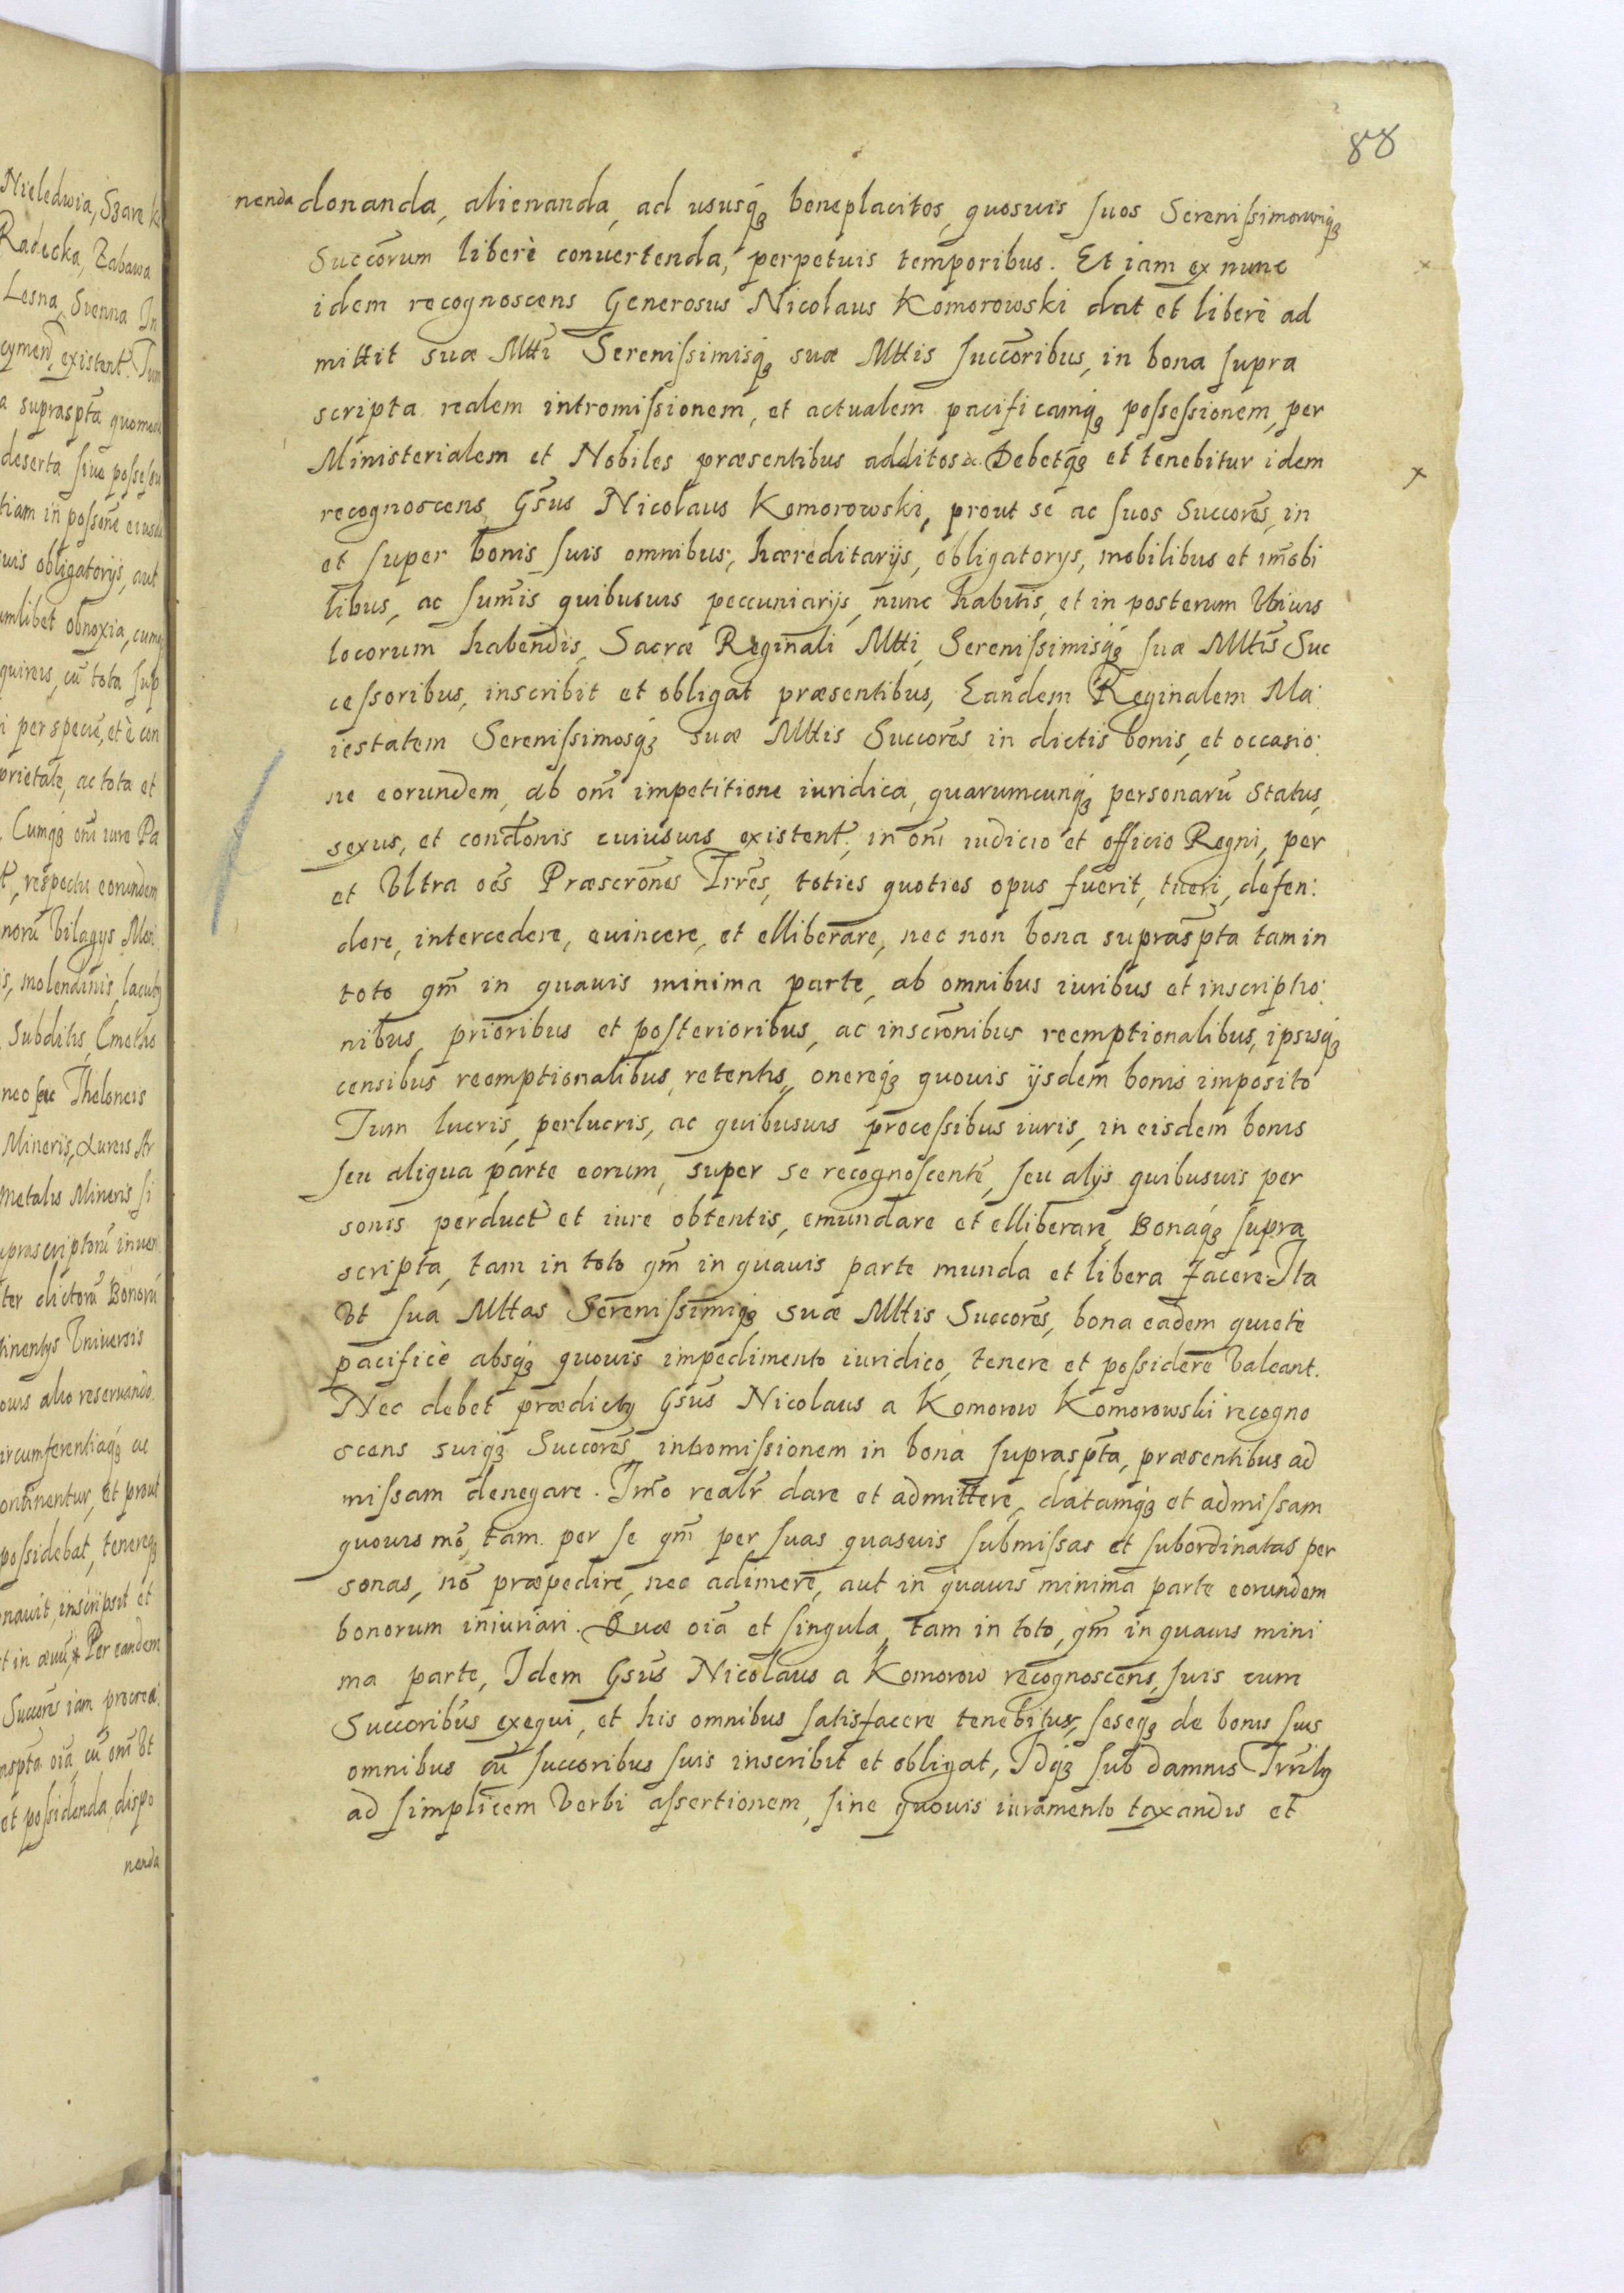 Nieledwia, Szare k
Radecka, Zabawa
Lesna, Svenna In
cymen, existent. Tum
a suprasptã quomodo
deserta siue possessu
tiam in possõne eiusd
uis obligatorijs, aut
umlibet obnoxia, cumq
quireis, cũ tota sup
i per specie, et è con
prietate, ac tota et
Cumqȝ om̃i iure Pa
t, respectu eorundem
norũ Vilagys Meri
is, molendinis, lacubȝ
Subditis, Cmetho
neo seu Theloneis
Mineris, Aureis Ar
metalis Mineris si
upra scriptorũ inuen
ter dictorũ Bonorũ
tinentys Vniversis
ouis alio reseruando
ircumferentiaqȝ ac
ontinentur, et prout
possidebat, tenereqȝ
nauit, inscripsit et
t in æuũ, Per eandem
Succores iam procrea:
asptã oĩa, cũ om̃i Vt
et possidenda, dispo
nenda
88
nenda donanda, alienanda, ad ususq́ȝ beneplacitos, quosuis suos Serenissimorumq́ȝ
Succõrum liberè conuertenda, perpetuis temporibus. Et iam ex nunc
idem recognoscens Generosus Nicolaus Komorowski dat et liberè ad
mittit suæ Mttĩ Serenissimisq́ȝ suæ Mttis succõribus, in bona supra
scripta realem intromissionem, et actualem pacificamq́ȝ possessionem, per
Ministerialem et Nobiles præsentibus additos. Debetq́ȝ et tenebitur idem
recognoscens Gs̃us Nicolaus Komorowski, prout se ac suos Succorẽs, in
et super bonis suis omnibus, hæreditarijs, obligatorys, mobilibus et im̃obi
libus, ac sum̃is quibusuis peccuniarijs, nunc habitis, et in posterum Vbiuis
locorum habendis, Sacræ Reginali Mtti, Serenissimisq́ȝ suæ Mttis Suc
cessoribus, inscribit et obligat præsentibus, Eandem Reginalem Ma:
iestatem Serenissimosq́ȝ suæ Mttis Succorẽs in dictis bonis, et occasio:
ne eorundem, ab om̃i impetitione iuridica, quarumcunq́ȝ personarũ status,
sexus, et condõnis cuiusuis existent, in om̃i iudicio et officio Regni, per
et Vltra oẽs Præscrõnes Trrẽs, toties quoties opus fuerit, tueri, defen:
dere, intercedere, euincere, et elliberare, nec non bona suprasptã tam in
toto qm̃ in quauis minima parte, ab omnibus iuribus et inscriptio:
nibus, prioribus et posterioribus, ac inscrõnibus reemptionalibus, ipsisq́ȝ
censibus reemptionalibus, retentis, onereq́ȝ quouis ijsdem bonis imposito
Tum lucris, perlucris, ac quibusuis processibus iuris, in eisdem bonis
seu aliqua parte eorum, super se recognoscente, seu alijs quibusuis per
sonis perduct et iure obtentis, emundare et elliberare, Bonaq́ȝ supra
scripta, tam in toto qm̃ in quauis parte munda et libera facere Ita
Vt sua Mttas Serenissimiq́ȝ suæ Mttis Succorẽs, bona eadem quietè
pacificè absq́ȝ quouis impedimento iuridico, tenere et possidere Valeant.
Nec debet prædictȝ Gs̃us Nicolaus a Komorow Komorowski recogno
scens suiq́ȝ Succorẽs intromissionem in bona suprasptã, præsentibus ad
missam denegare. Im̃o realr̃ dare et admittere, datamq́ȝ et admissam
quouis mõ, tam per se qm̃ per suas quasuis submissas et subordinatas per
sonas, nõ præpedire, nec adimere, aut in quauis minima parte eorundem
bonorum iniuriari. Quæ oĩa et singula, tam in toto, qm̃ in quauis mini
ma parte, Idem Gs̃us Nicolaus a Komorow recognoscens, suis cum
Succoribus exequi, et his omnibus satisfacere tenebitur, seseq́ȝ de bonis suis
omnibus cũ succoribus suis inscribit et obligat, Idq́ȝ sub damnis Trrilȝ
ad simplicem Verbi assertionem, sine quouis iuramento taxandis et